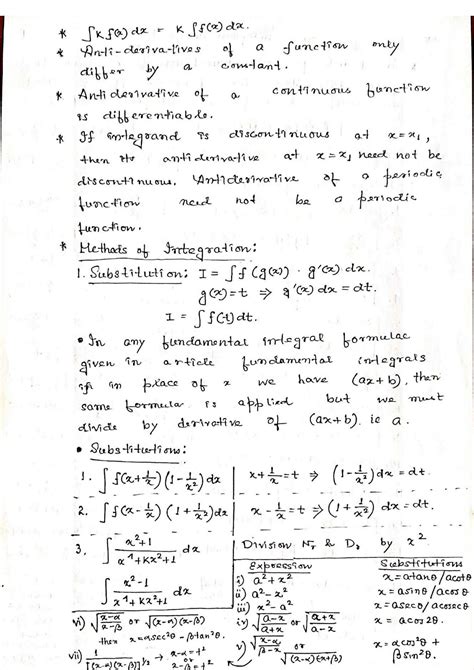 * ∫K f(x) dx = K ∫f(x) dx.
* Anti-derivatives of a function only
differ by a constant.
* Antiderivative of a continuous function
is differentiable.
* If integrand is discontinuous at x=x₁,
then its antiderivative at x=x₁ need not be
discontinuous. Antiderivative of a periodic
function need not be a periodic
function.
* Methods of Integration:
1. Substitution: I = ∫f(g(x)) · g'(x) dx.
g(x)=t ⇒ g'(x) dx = dt.
I = ∫f(t) dt.
• In any fundamental integral formulae
given in article fundamental integrals
if in place of x we have (ax+b), then
same formula is applied but we must
divide by derivative of (ax+b) ie a.
• Substitutions:
1. ∫ f(x+1/x) (1-1/x²) dx | x+1/x=t ⇒ (1-1/x²) dx = dt.
2. ∫ f(x-1/x) (1+1/x²) dx | x-1/x=t ⇒ (1+1/x²) dx = dt.
3. ∫ x²+1/x⁴+Kx²+1 dx Division Nr & Dr by x²
∫ x²-1/x⁴+Kx²+1 dx
Expression Substitutions
i) a²+x² x=atanθ/acotθ
ii) a²-x² x=asinθ/acosθ
iii) x²-a² x=asecθ/acosecθ
iv) √a-x/a+x or √a+x/a-x x=acos2θ.
v) √x-α/β-x or √(x-α)(x+β) x=αcos²θ+βsin²θ.
vi) √x-α/x-β or √(x-α)(x-β)
then x=αsec²θ-βtan²θ.
vii) 1/[(x-α)(x-β)]^1/2 → x-α=t² or x-β=t²